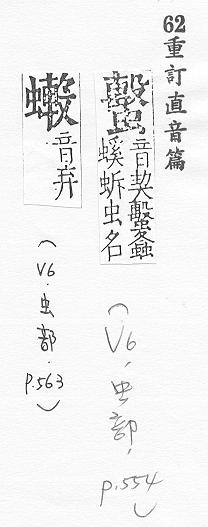 62重訂直音篇
蟿
音契蟿螽
螇蚸虫名
(V6.虫部.p.554)
音弃
(V6.虫部.p.563)